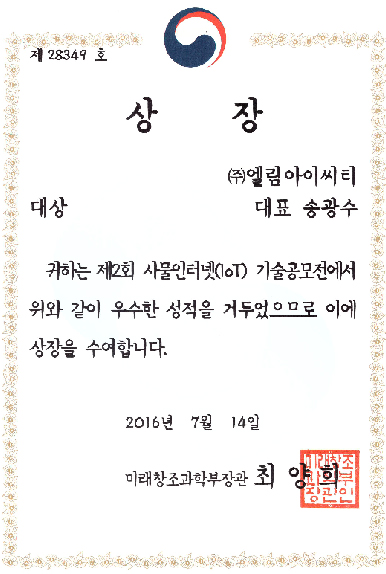 제 28349 호
상 장
㈜엘림아이씨티
대상 대표 송광수
귀하는 제2회 사물인터넷(IoT) 기술공모전에서
위와 같이 우수한 성적을 거두었으므로 이에
상장을 수여합니다.
2016년 7월 14일
미래창조과학부장관 최양희
미래창조
과학부
장관인